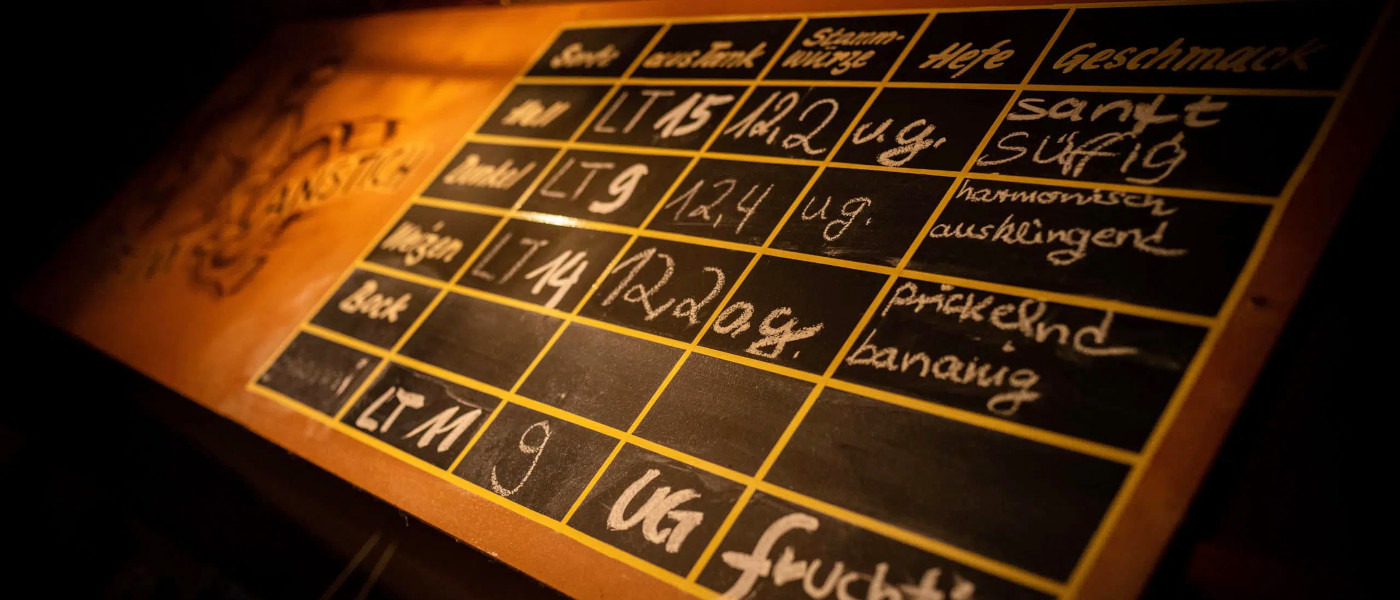 ANSTICH
Sorte aus Tank Stamm-würze Hefe Geschmack
Hell LT 15 12,2 u.g. sanft
süffig
Dunkel LT 9 12,4 ug. harmonisch
ausklingend
Weizen LT 14 12,2 o.g. prickelnd
bananig
Bock
LT 11 9 UG fruchti